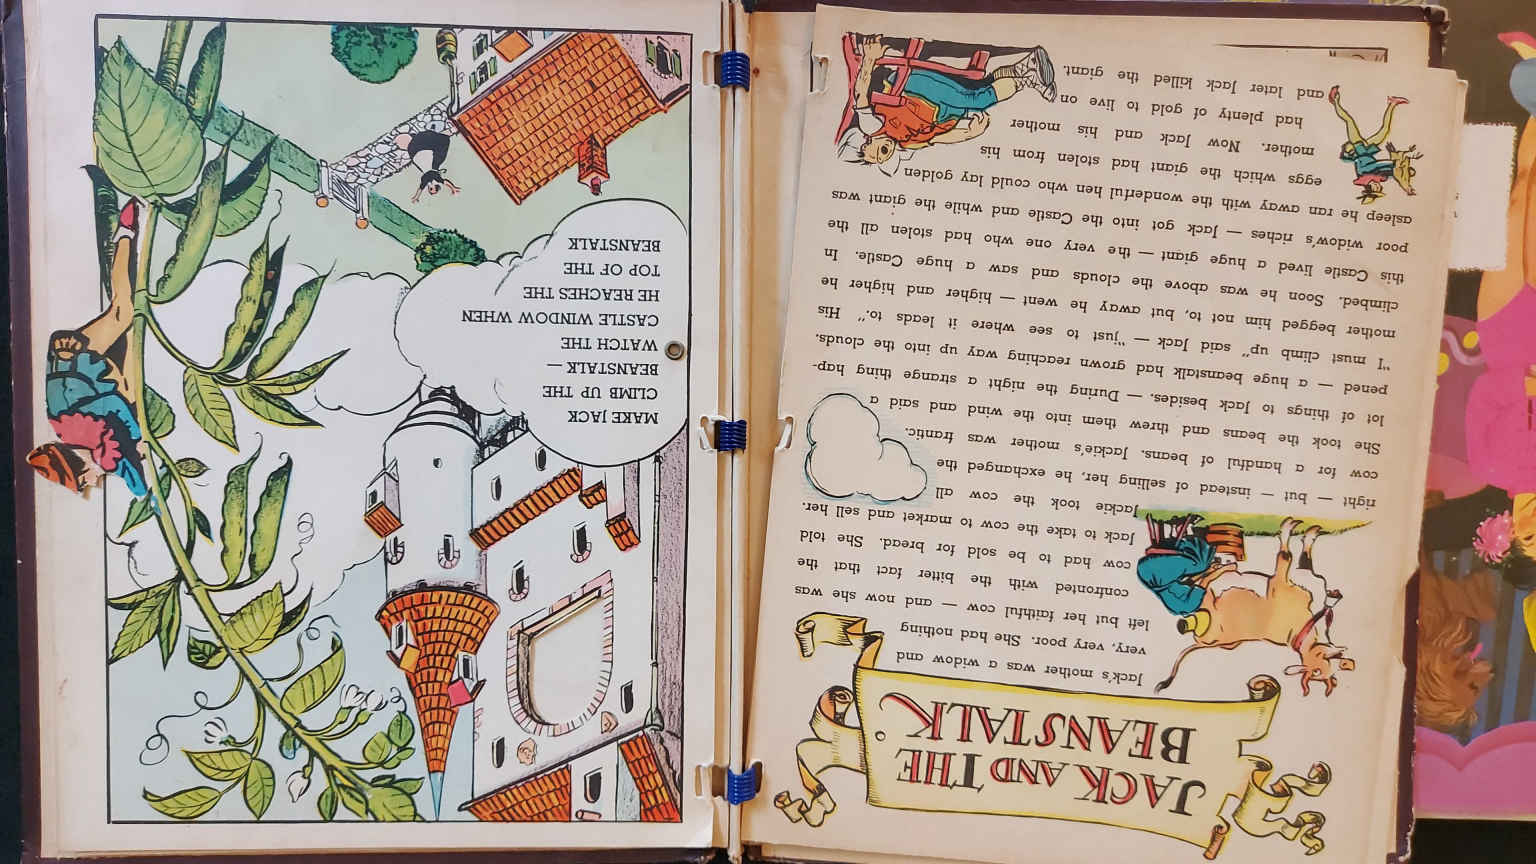 JACK AND THE
BEANSTALK
Jack's mother was a widow and
very, very poor. She had nothing
left but her faithful cow — and now she was
confronted with the bitter fact that the
cow had to be sold for bread. She told
Jack to take the cow to market and sell her.
Jackie took the cow all
right — but — instead of selling her, he exchanged the
cow for a handful of beans. Jackie's mother was frantic.
She took the beans and threw them into the wind and said a
lot of things to Jack besides. — During the night a strange thing hap-
pened — a huge beanstalk had grown reaching way up into the clouds.
"I must climb up" said Jack — "just to see where it leads to." His
mother begged him not to, but away he went — higher and higher he
climbed. Soon he was above the clouds and saw a huge Castle. In
this Castle lived a huge giant — the very one who had stolen all the
poor widow's riches — Jack got into the Castle and while the giant was
asleep he ran away with the wonderful hen who could lay golden
eggs which the giant had stolen from his
mother. Now Jack and his mother
had plenty of gold to live on
and later Jack killed the giant.
MAKE JACK
CLIMB UP THE
BEANSTALK —
WATCH THE
CASTLE WINDOW WHEN
HE REACHES THE
TOP OF THE
BEANSTALK